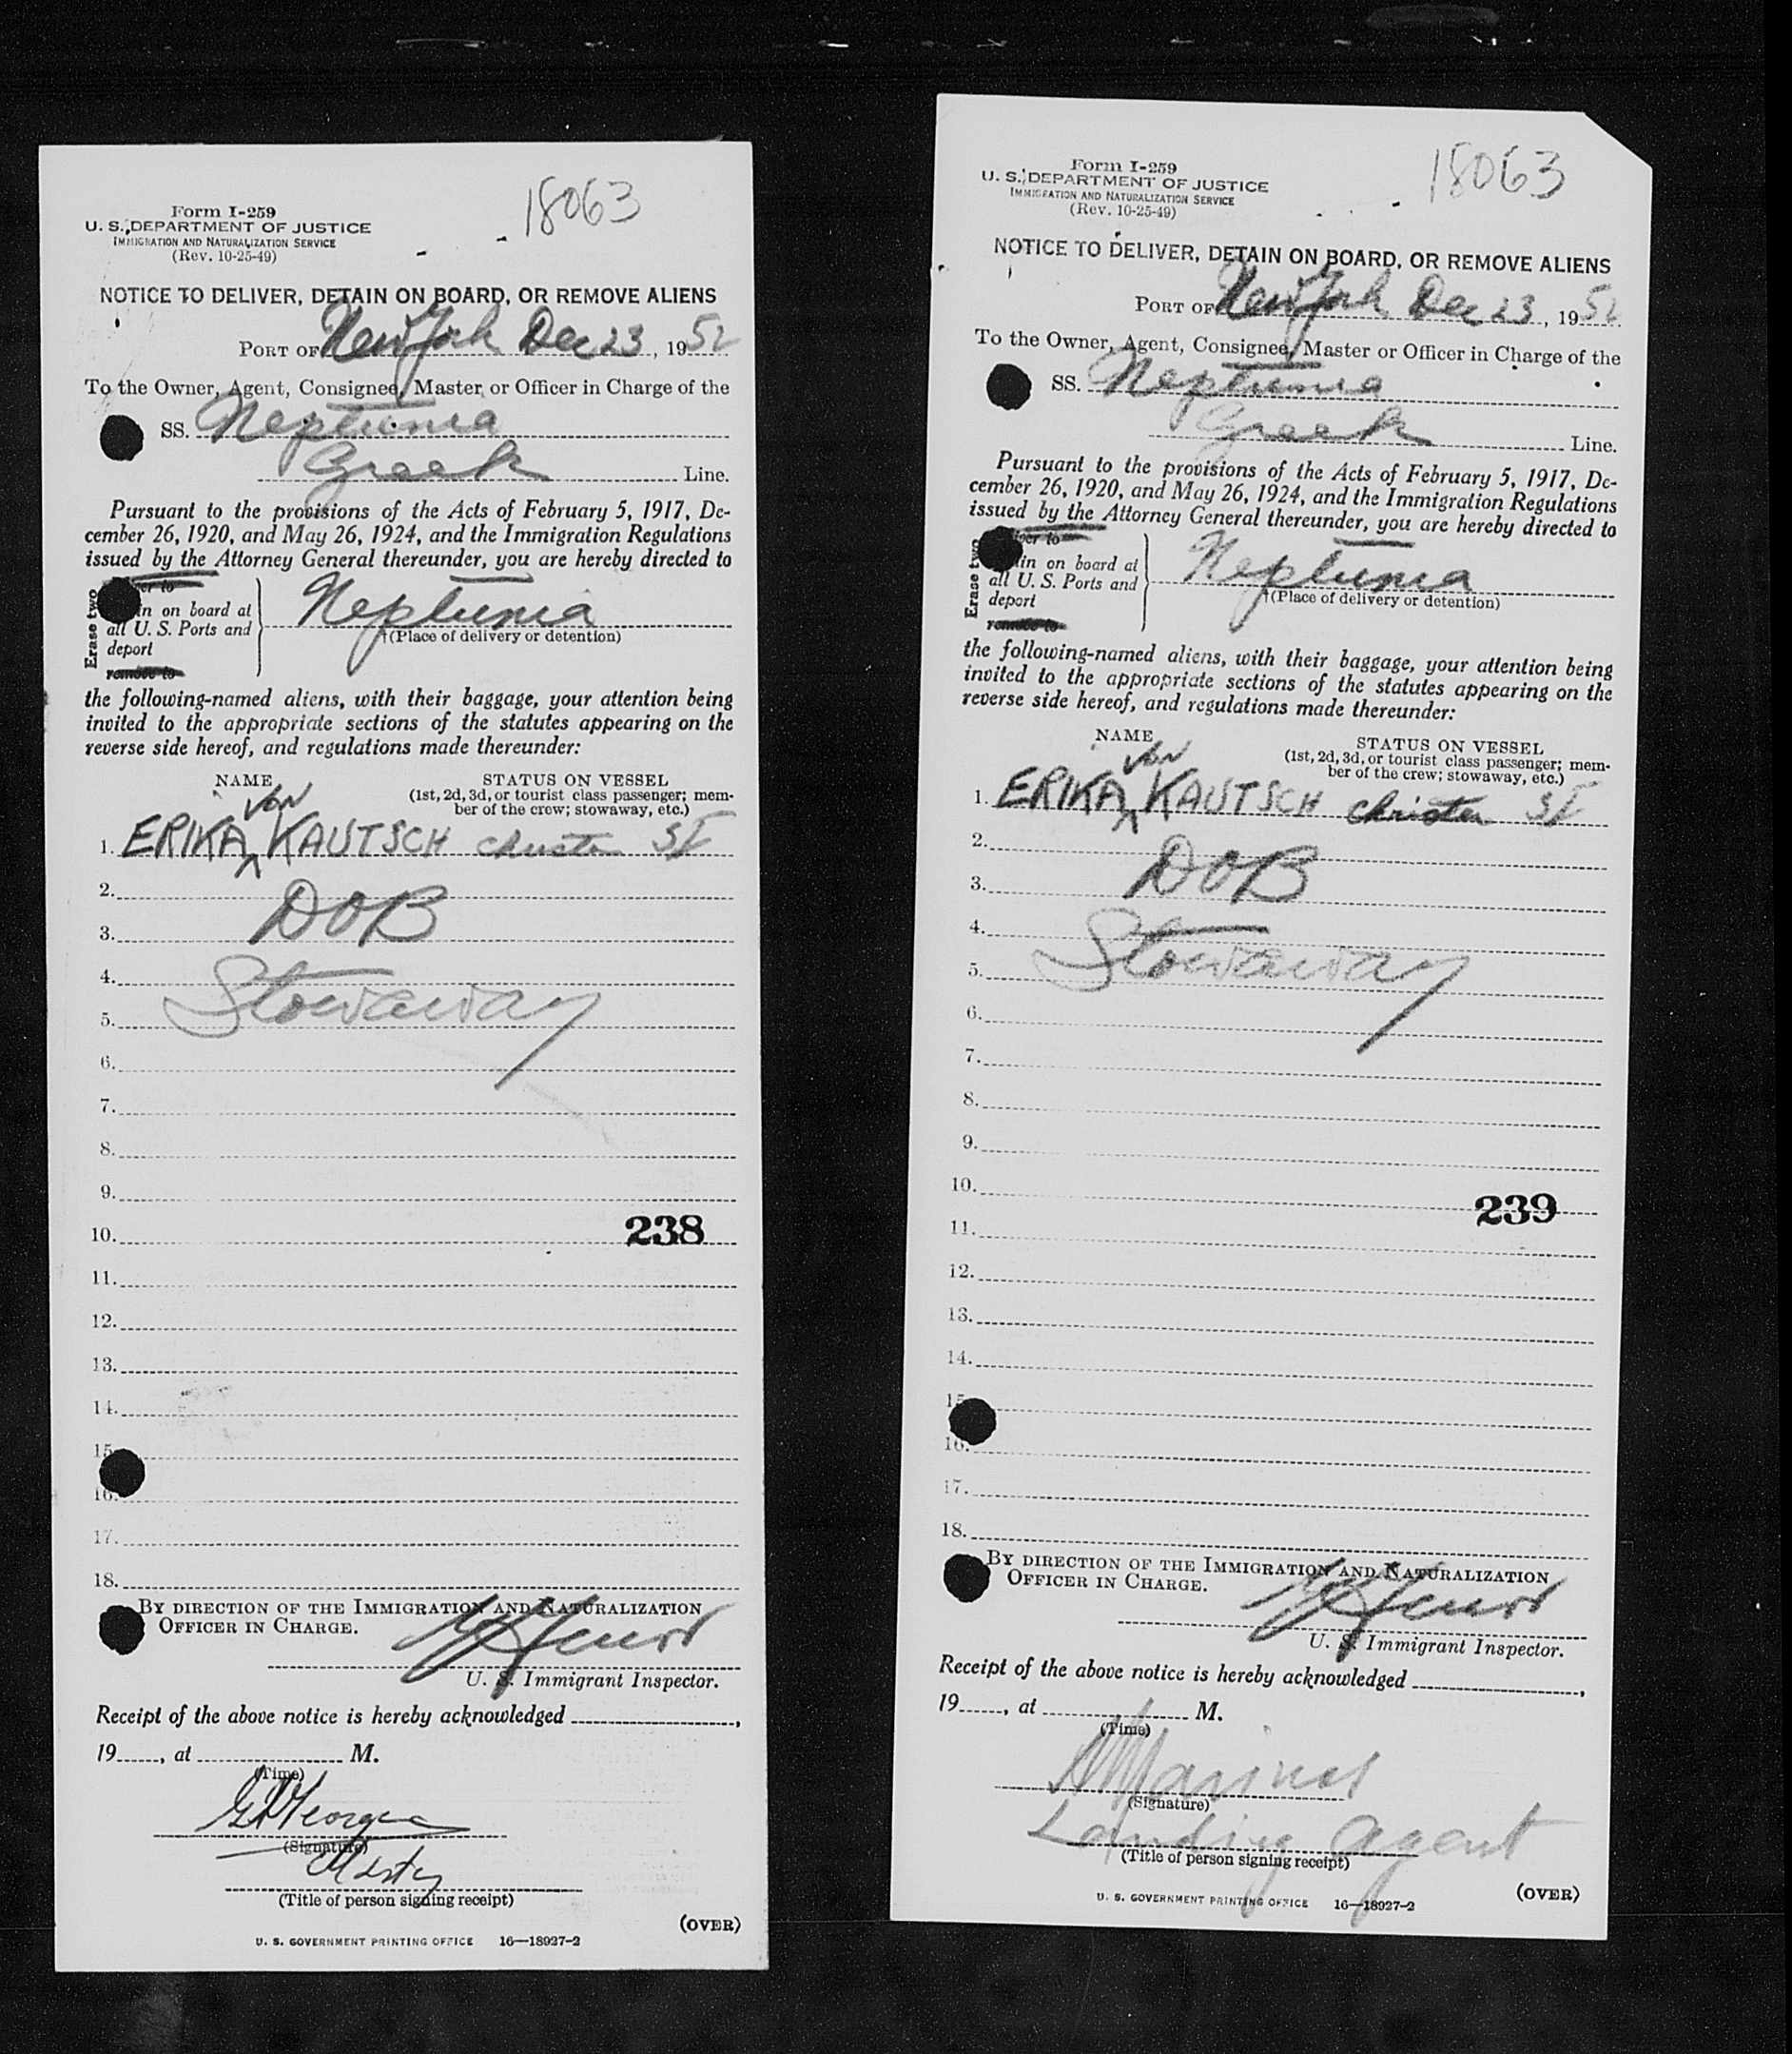 18063
Form I-259
U. S. DEPARTMENT OF JUSTICE
IMMIGRATION AND NATURALIZATION SERVICE
(Rev. 10-25-49)
NOTICE TO DELIVER, DETAIN ON BOARD, OR REMOVE ALIENS
PORT OF New York Dec 23, 1952
To the Owner, Agent, Consignee, Master or Officer in Charge of the
SS. Neptunia
Greek Line.
Pursuant to the provisions of the Acts of February 5, 1917, De-
cember 26, 1920, and May 26, 1924, and the Immigration Regulations
issued by the Attorney General thereunder, you are hereby directed to
Erase two
er to
in on board at
all U. S. Ports and
deport
remove to
Neptunia
†(Place of delivery or detention)
the following-named aliens, with their baggage, your attention being
invited to the appropriate sections of the statutes appearing on the
reverse side hereof, and regulations made thereunder:
NAME
STATUS ON VESSEL
(1st, 2d, 3d, or tourist class passenger; mem-
ber of the crew; stowaway, etc.)
von
1. ERIKA ^ KAUTSCH
2.
DOB
3.
4.
Stowaway
5.
6.
7.
8.
9.
10. 238
11.
12.
13.
14.
15
16.
17.
18.
BY DIRECTION OF THE IMMIGRATION AND NATURALIZATION
OFFICER IN CHARGE.
U. S. Immigrant Inspector.
Receipt of the above notice is hereby acknowledged ,
19 , at M.
(Time)
(Signature)
(Title of person signing receipt)
(OVER)
U. S. GOVERNMENT PRINTING OFFICE 16—18927-2
18063
Form I-259
U. S. DEPARTMENT OF JUSTICE
IMMIGRATION AND NATURALIZATION SERVICE
(Rev. 10-25-49)
NOTICE TO DELIVER, DETAIN ON BOARD, OR REMOVE ALIENS
PORT OF New York Dec 23, 1952
To the Owner, Agent, Consignee, Master or Officer in Charge of the
SS. Neptunia
Greek Line.
Pursuant to the provisions of the Acts of February 5, 1917, De-
cember 26, 1920, and May 26, 1924, and the Immigration Regulations
issued by the Attorney General thereunder, you are hereby directed to
Erase two
ver to
in on board at
all U. S. Ports and
deport
remove to
Neptunia
†(Place of delivery or detention)
the following-named aliens, with their baggage, your attention being
invited to the appropriate sections of the statutes appearing on the
reverse side hereof, and regulations made thereunder:
NAME
STATUS ON VESSEL
(1st, 2d, 3d, or tourist class passenger; mem-
ber of the crew; stowaway, etc.)
von
1. ERIKA ^ KAUTSCH
2.
DOB
3.
4.
Stowaway
5.
6.
7.
8.
9.
10. 239
11.
12.
13.
14.
15
16.
17.
18.
BY DIRECTION OF THE IMMIGRATION AND NATURALIZATION
OFFICER IN CHARGE.
U. S. Immigrant Inspector.
Receipt of the above notice is hereby acknowledged ,
19 , at M.
(Time)
(Signature)
Landing Agent
(Title of person signing receipt)
(OVER)
U. S. GOVERNMENT PRINTING OFFICE 16—18927-2